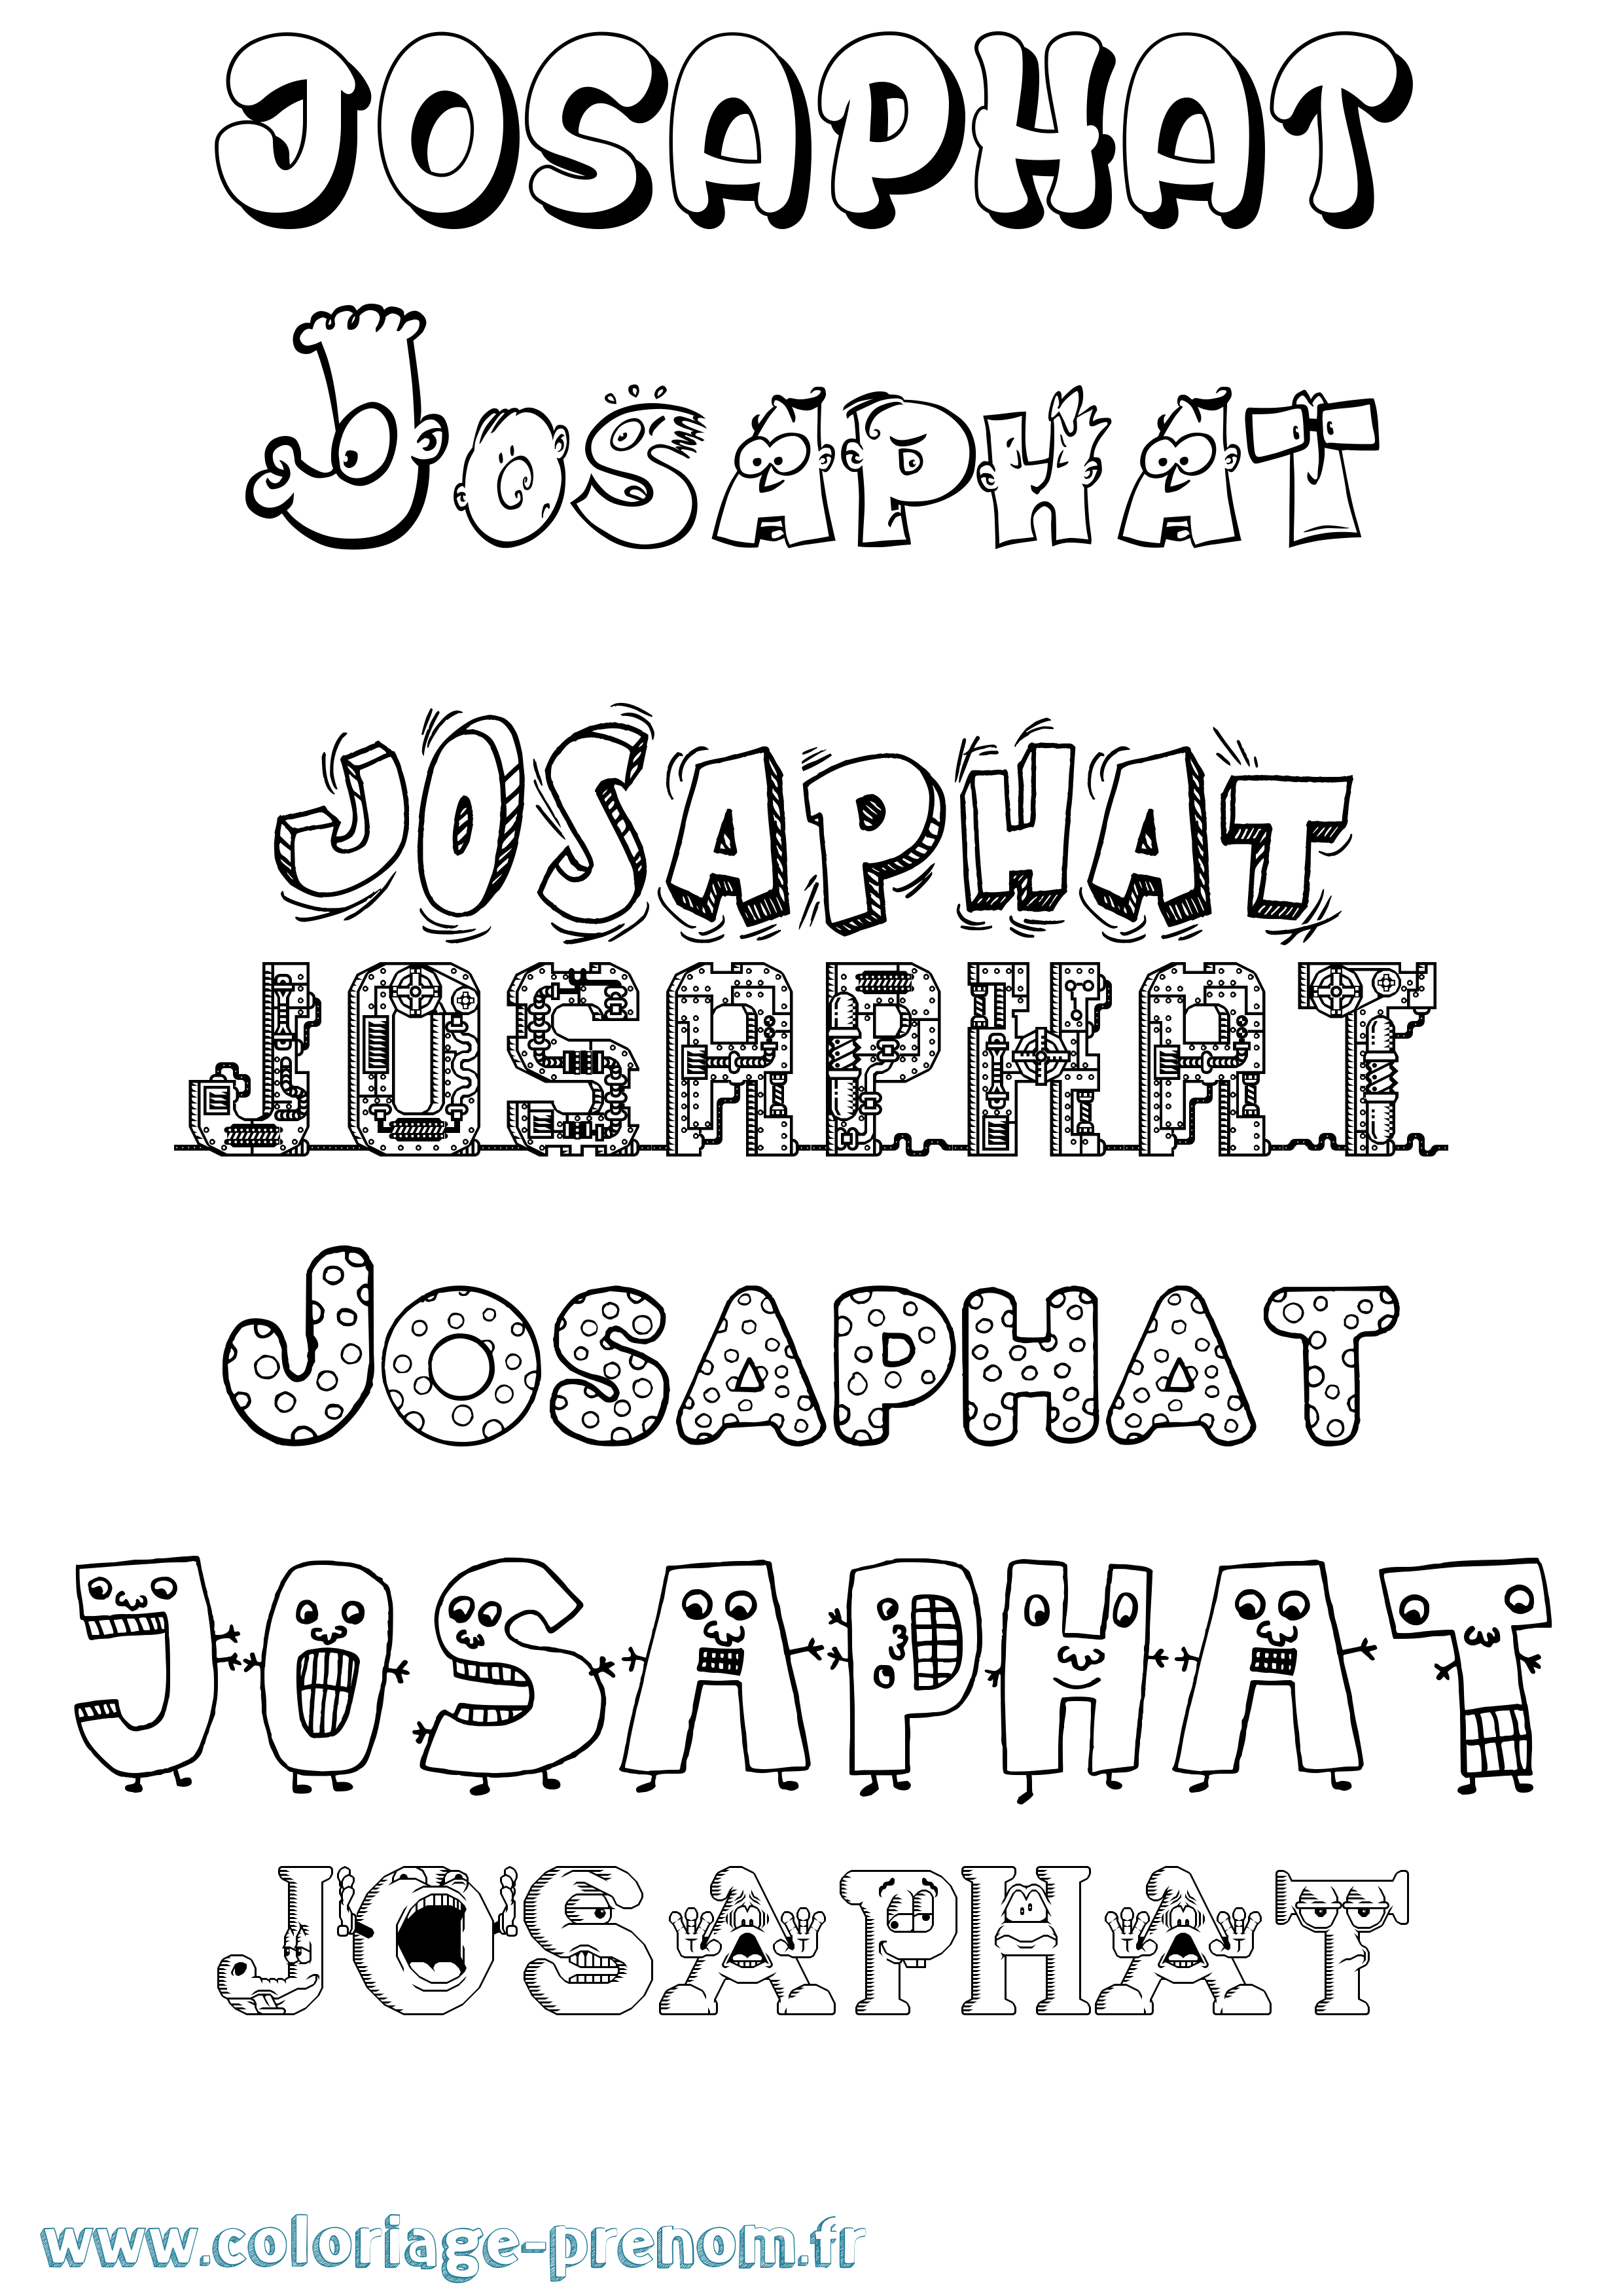 JOSAPHAT
JOSAPHAT
JOSAPHAT
JOSAPHAT
JOSAPHAT
JOSAPHAT
JOSAPHAT
www.coloriage-prenom.fr